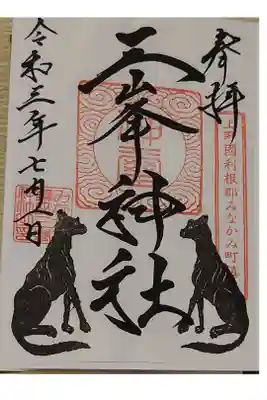 奉拝
上野國利根郡みなかみ町
三峯神社
令和三年七月八日